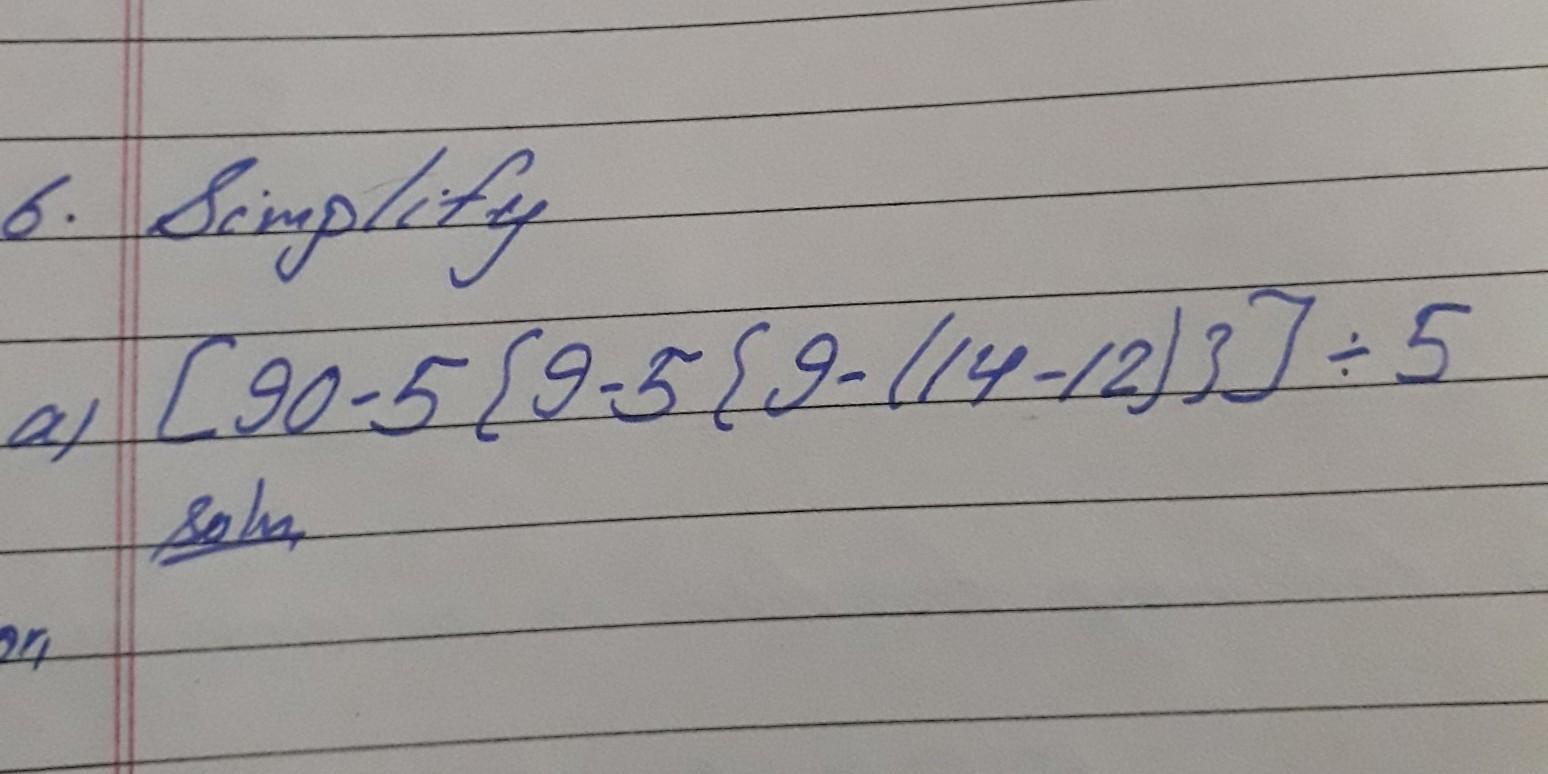 6. Simplify
a) [90-5{9-5{9-(14-12)}]÷5
Soln